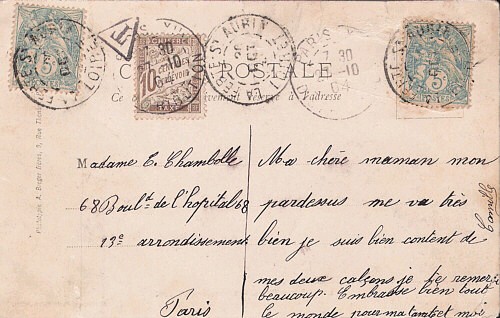 CARTE POSTALE
Ce côté est exclusivement réservé à l'adresse
T
10
CENTIMES
A PERCEVOIR
5
5
LA FERTÉ ST AUBIN
LOIRET
7 30
10
04
Madame E. Chambolle
68 Boul.d de l'hopital 68
13e arrondissement
Paris
Ma chère maman mon
pardessus me va très
bien je suis bien content de
mes deux calçons je te remerci
beaucoup. Embrasse bien tout
le monde pour ma tante et moi
Camille